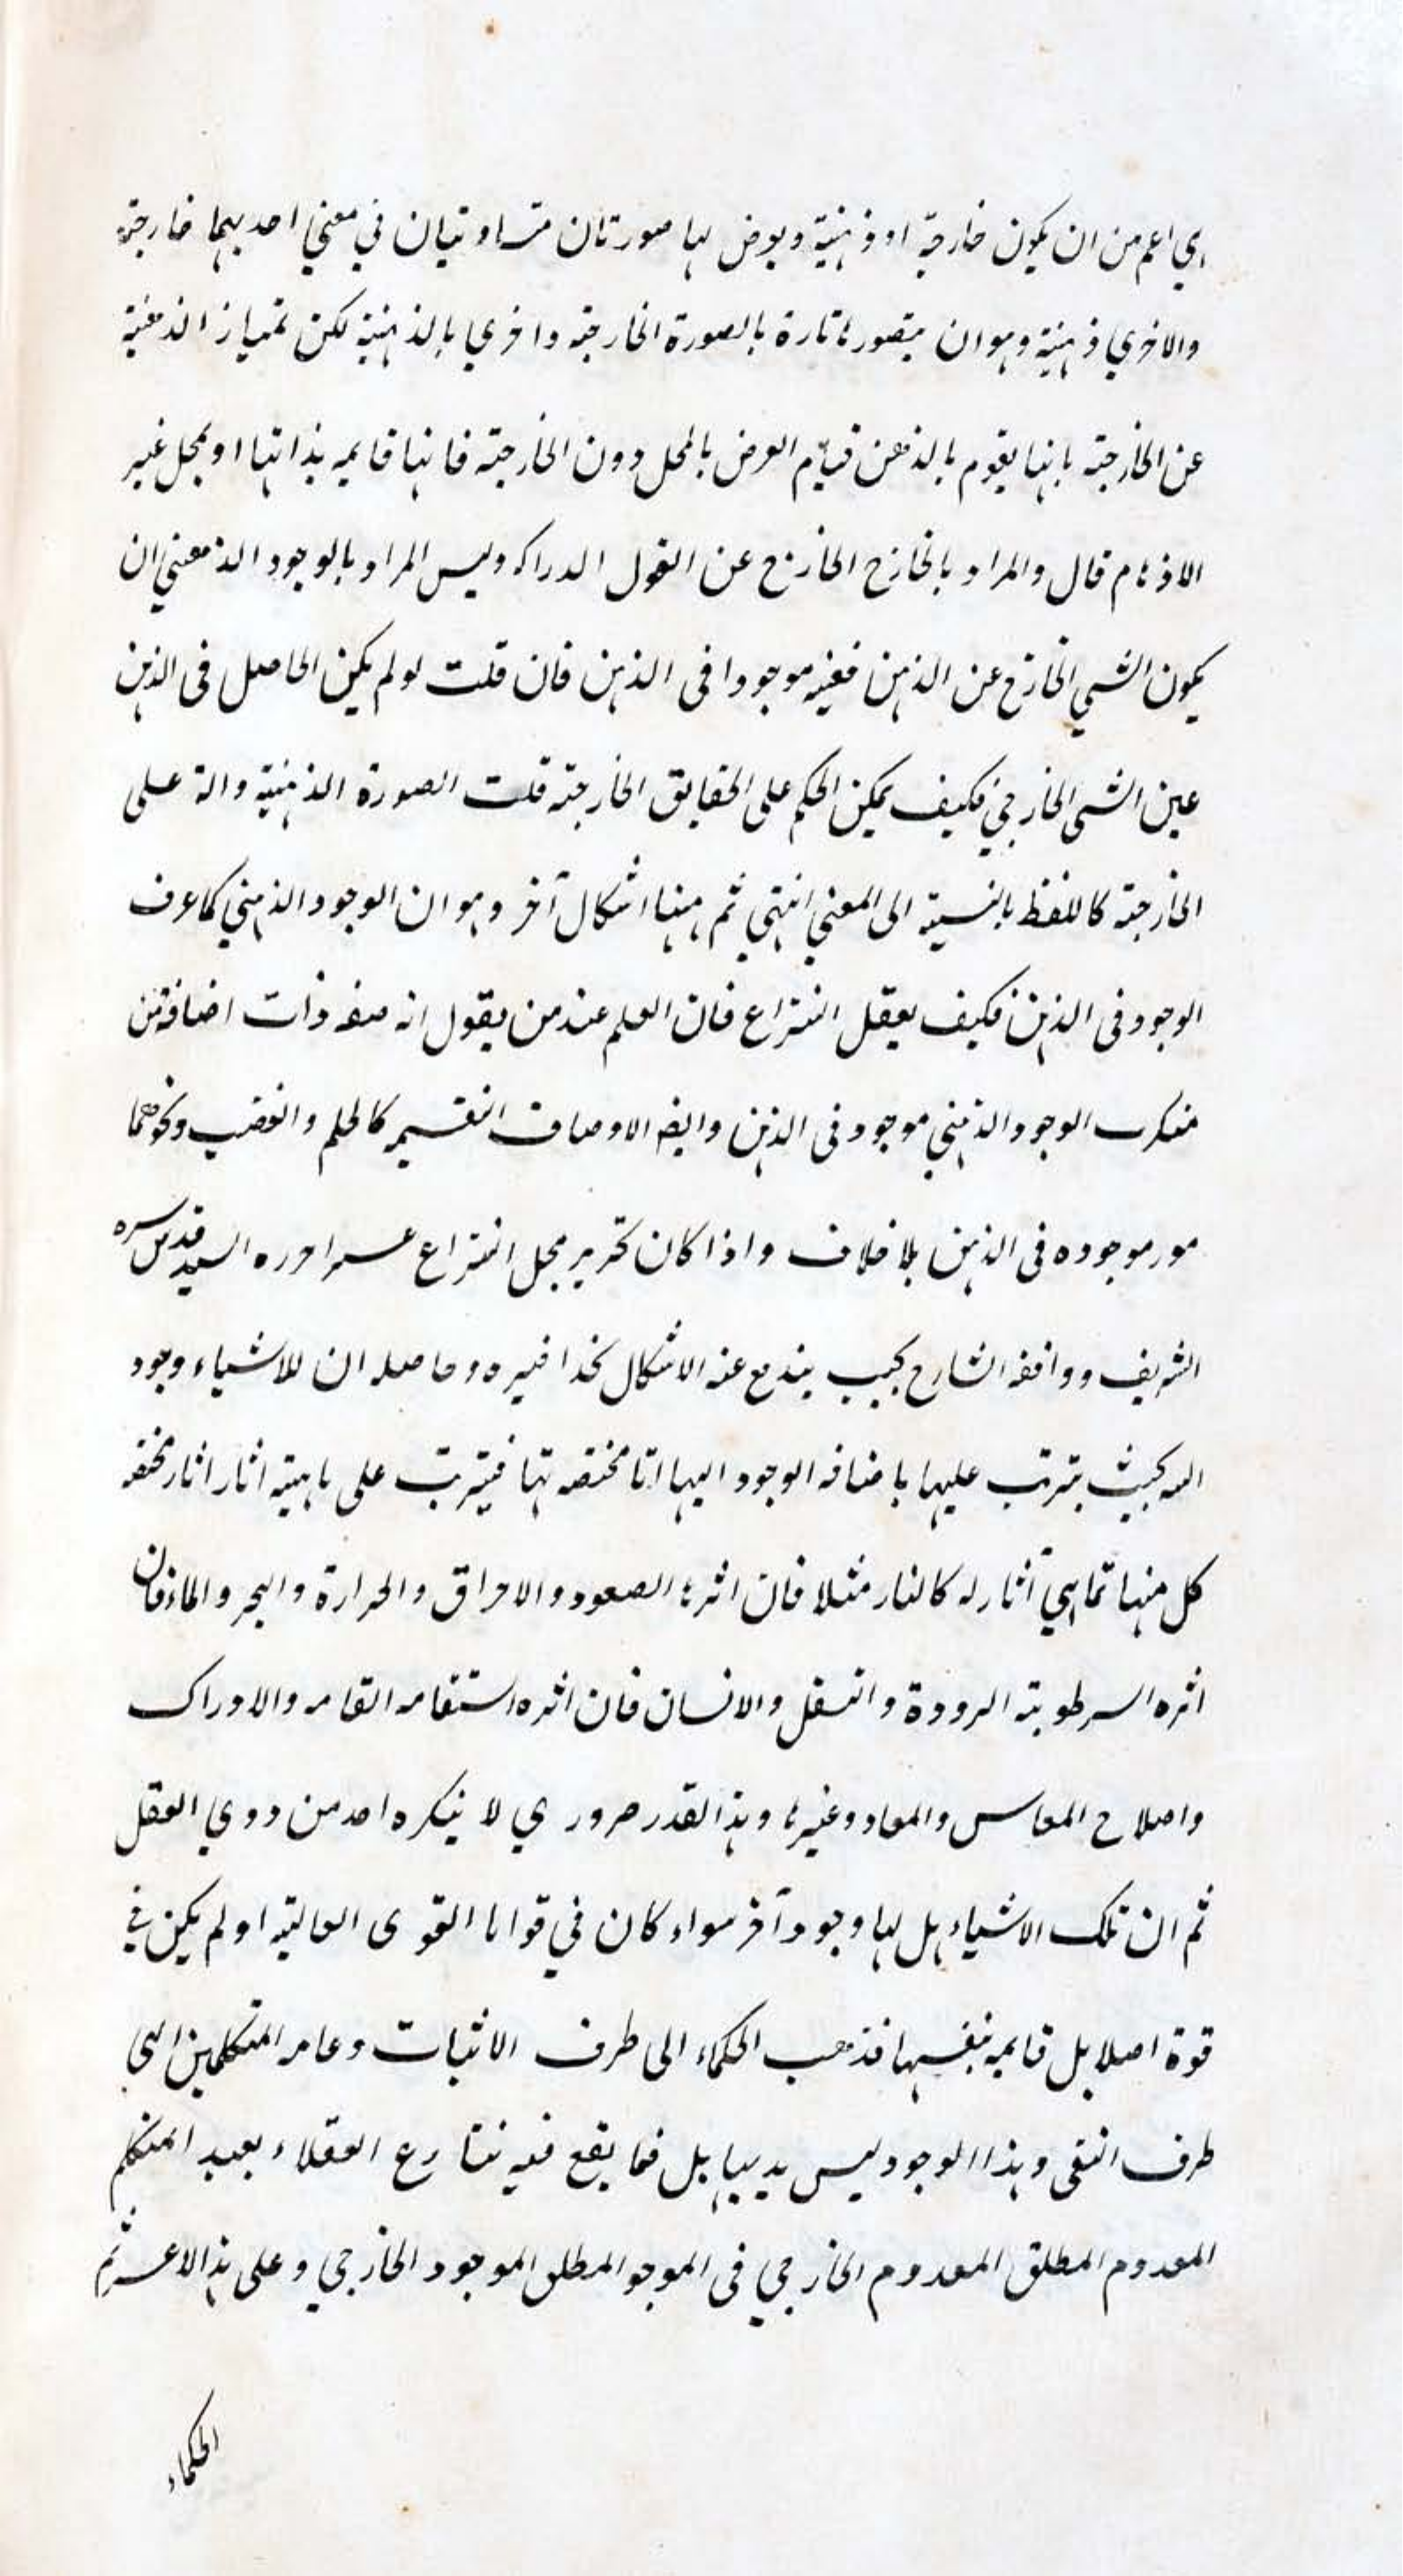 هي اعم من ان يكون خارجية او ذهنية ويعرض لها صورتان متساويتان في معنى احديهما خارجية
والاخري ذهنية وهو ان يتصورها تارة بالصورة الخارجية واخري بالذهنية لكن تمياز الذهنية
عن الخارجية بانها يقوم بالذهن قيام العرض بالمحل دون الخارجية فانها قايمه بذاتها او بمحل غير
الاذهام قال والمراد بالخارج الخارج عن القول الدراكه وليس المراد بالوجود الذهني ان
يكون الشي الخارج عن الذهن فعينه موجودا في الذهن فان قلت لو لم يكن الحاصل في الذهن
عين الشي الخارجي فكيف يمكن الحكم على الحقايق الخارجية قلت الصورة الذهنية دالة على
الخارجية كاللفظ بالنسبة الى المعني انتهي ثم ههنا اشكال آخر وهو ان الوجود الذهني كما عرف
الوجود في الذهن فكيف يعقل النزاع فان العلم عند من يقول انه صفه ذات اضافة من
منكرى الوجود الذهني موجود في الذهن وايضا الاوصاف النفسيه كالحلم والغضب ونحوهما
مور موجوده في الذهن بلا خلاف واذا كان تحرير محل النزاع عسرا حرره السيد قدس سره
الشريف ووافقه الشارح بحيث يندفع عنه الاشكال بحذافيره وحاصله ان للاشياء وجود
الله بحيث يترتب عليها باضافه الوجود اليها اثا مختصه بها فيترتب على ماهيته اثار اثار مختصه
كل منها تماهي آثار له كالنار مثلا فان اثرها الصعود والاحراق والحرارة والبحر والماء فان
اثره السرطوبته البرودة والتسفل والانسان فان اثره استقامه القامه والادراك
واصلاح المعاس والمعاد وغيرها وهذا القدر ضروري لا ينكره احد من ذوي العقل
ثم ان تلك الاشياء هل لها وجود آخر سواء كان في قوانا القوى العالية او لم يكن في
قوة اصلا بل قايمه بنفسها فذهب الحكماء الى طرف الاثبات وعامه المتكلمين الى
طرف النفى وهذا الوجود ليس بديهيا بل فما يقع فيه تنازع العقلاء بعيد المتكلم
المعدوم المطلق المعدوم الخارجي في الموجو المطلق الموجود الخارجي وعلى هذا الاعسر ثم
الحكماء